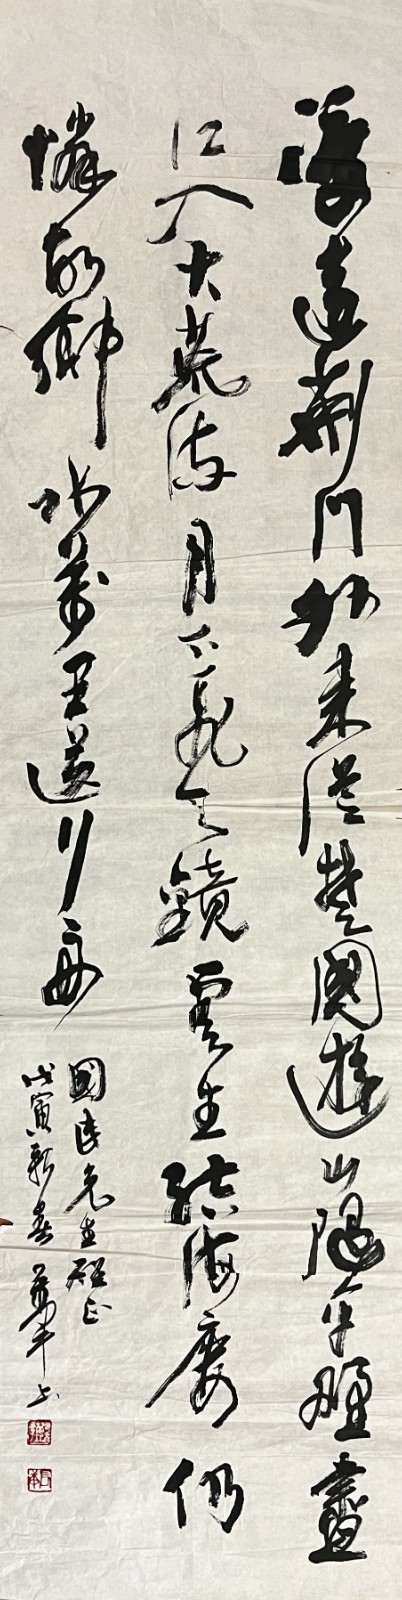 渡遠荊門外來從楚國遊山隨平野盡
江入大荒流月下飛天鏡雲生結海廔仍
憐故鄉水萬里送行舟
國先生正
戊寅新春上